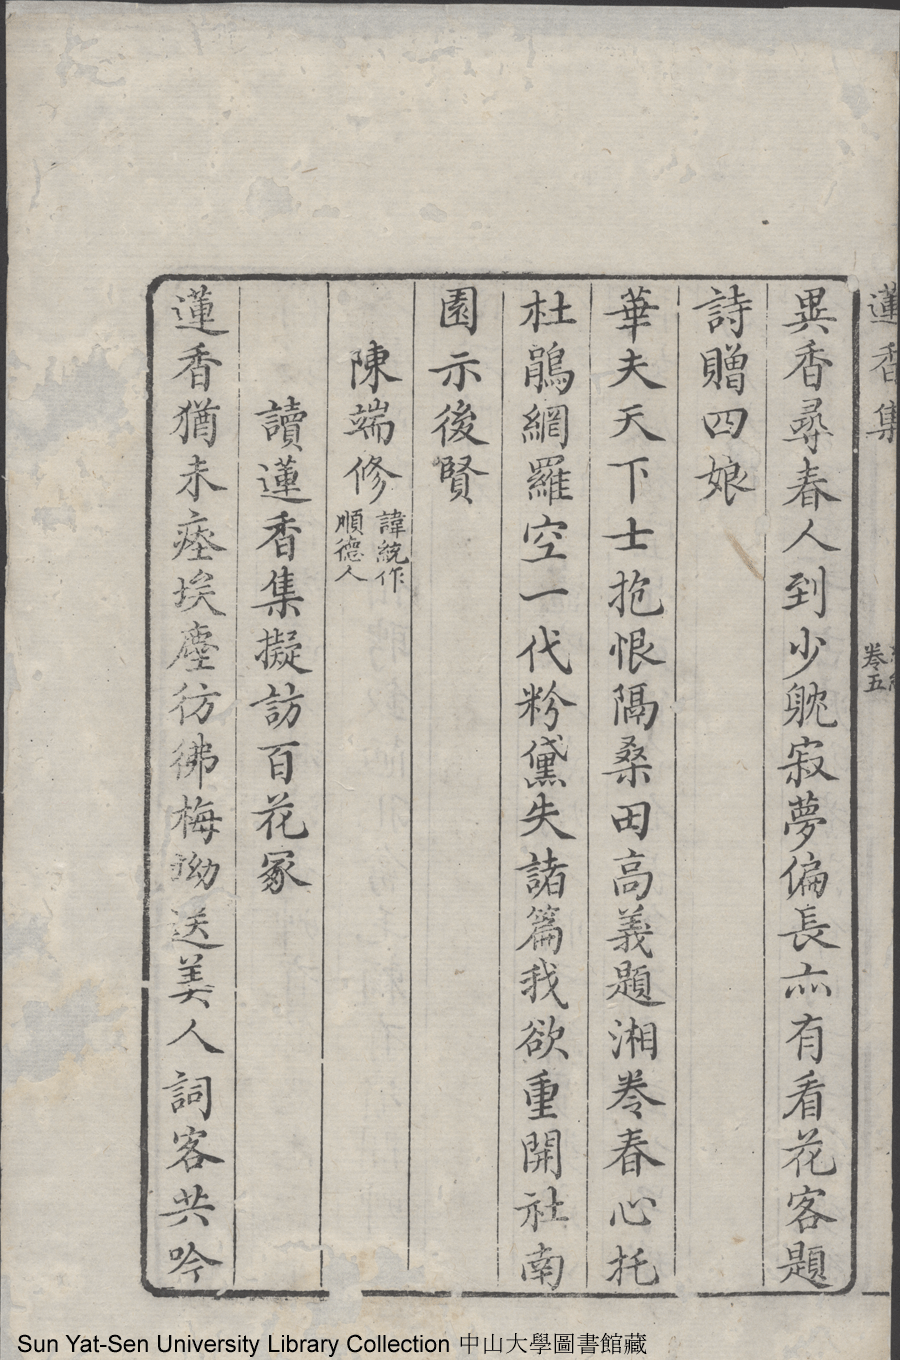 蓮香集
卷五
異香尋春人到少躭寂夢偏長亦有看花客題
詩贈四娘
華夫天下士抱恨隔桑田高義題湘卷春心托
杜鵑網羅空一代粉黛失諸篇我欲重開社南
園示後賢
陳端修 諱統作
順德人
讀蓮香集擬訪百花冢
蓮香猶未瘞埃塵彷彿梅坳送美人詞客共吟
Sun Yat-Sen University Library Collection 中山大學圖書館藏